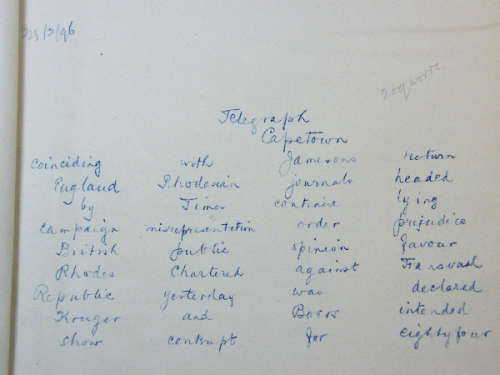 28/2/96
Telegraph
Capetown
coinciding with Jamesons return
England Rhodesian journals headed
by Times continue lying
campaign misrepresentation order prejudice
British public opinion favour
Rhodes Chartered against Transvaal
Republic yesterday was declared
Kruger and Boers intended
show contempt for eightyfour